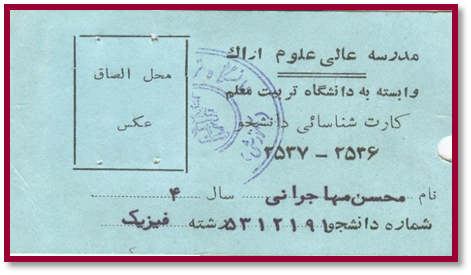 مدرسه عالی علوم اراک
وابسته به دانشگاه تربیت معلم
کارت شناسائی دانشجو
۲۵۳۶ - ۲۵۳۷
محل الصاق
عکس
نام محسن مهاجرانی سال ۴
شماره دانشجو ۵۳۱۲۱۹۱ رشته فیزیک